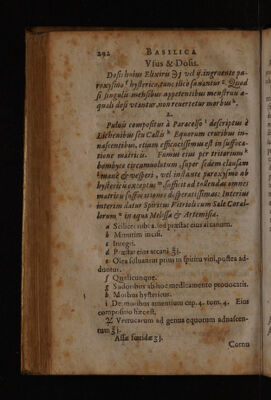 292 BASILICA
Usus & Dosis.
Dosis huius Elixiris ʒj vel ij. ingruente pa-
roxysmo ᶠ hysterico, tunc ilicò sanantur ᵍ. Quòd
si singulis mensibus appetentibus menstrui a-
quali dosi vtantur, non reuertetur morbus ʰ.
2.
Puluis compositus à Paracelso ⁱ descriptus è
Lichenibus seu Callis ᵏ Equorum cruribus in-
nascentibus, etiam efficacissimus est in suffoca-
tione matricis. Fumus eius per tritorium
bombyce circumuolutum, super sedem clausam
manè & vesperi, vel instante paroxysmo ab
hystericis exceptus sufficit ad tollendas omnes
matricis suffocationes desperatissimas: Interius
interim datur Spiritus Vitrioli cum Sale Coral-
lorum ⁿ in aqua Melissæ & Artemisiæ.
a Scilicet rubea, sed præstat eius aci tanum.
b Minutim incisi.
c Integri.
d Præstat eius arcani, ʒj.
e Olea soluantur prius in spiritu vini, postea ad-
duntur.
f Qualicunque.
g Sudoribus ab hoc medicamento prouocatis.
h Morbus hystericus.
i De morbis amentium cap. 4. tom. 4. Eius
compositio hæc est,
℞ Verrucarum ad genua equorum adnascen-
tium ℥j.
Assæ fœtidæ ʒj.
Cornu